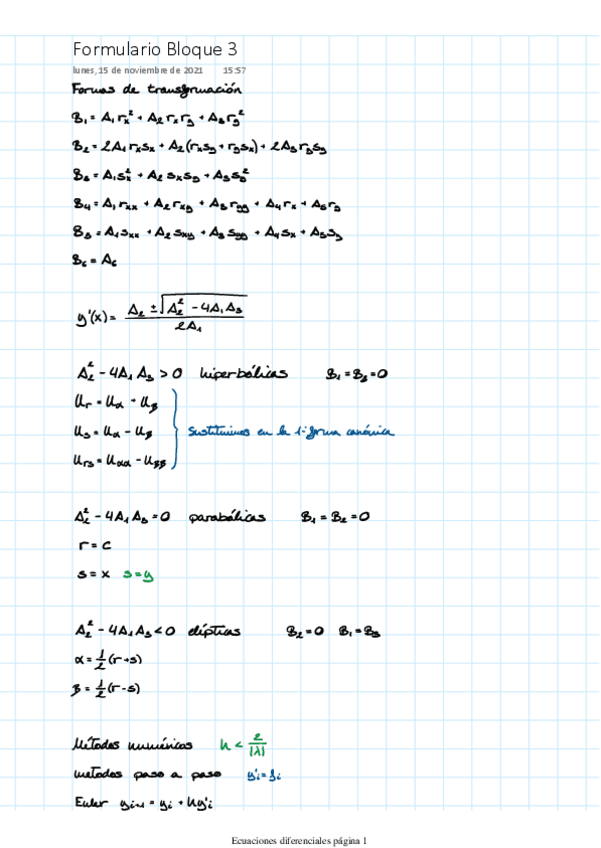 Formulario Bloque 3
lunes, 15 de noviembre de 2021 15:57
Formas de transformación
B₁ = A₁rₓ² + A₂rₓr_y + A₃r_y²
B₂ = 2A₁rₓsₓ + A₂(rₓs_y + r_ysₓ) + 2A₃r_ys_y
B₃ = A₁sₓ² + A₂sₓs_y + A₃s_y²
B₄ = A₁rₓₓ + A₂r_xy + A₃r_yy + A₄rₓ + A₅r_y
B₅ = A₁sₓₓ + A₂s_xy + A₃s_yy + A₄sₓ + A₅s_y
B₆ = A₆
y'(x) = (A₂ ± √(A₂² - 4A₁A₃)) / 2A₁
A₂² - 4A₁A₃ > 0 hiperbólicas B₁ = B₃ = 0
u_r = u_α + u_β
u_s = u_α - u_β Sustituimos en la 1ª forma canónica
u_rs = u_αα - u_ββ
A₂² - 4A₁A₃ = 0 parabólicas B₁ = B₂ = 0
r = c
s = x s = y
A₂² - 4A₁A₃ < 0 elípticas B₂ = 0 B₁ = B₃
α = ½(r+s)
β = ½(r-s)
Métodos numéricos h < 2/|λ|
metodos paso a paso y'ᵢ = fᵢ
Euler yᵢ₊₁ = yᵢ + hy'ᵢ
Ecuaciones diferenciales página 1